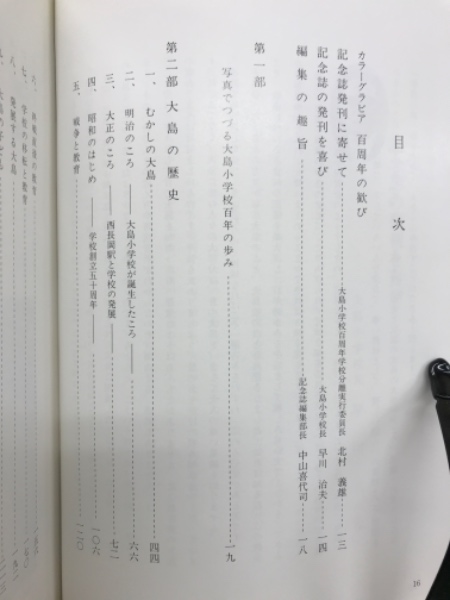 目次
カラーグラビア 百周年の歓び
記念誌発刊に寄せて 大島小学校百周年学校分離実行委員長 北村 義雄 一三
記念誌の発刊を喜び 大島小学校長 早川 治夫 一四
編集の趣旨 記念誌編集部長 中山喜代司 一八
第一部
写真でつづる大島小学校百年の歩み 一九
第二部 大島の歴史
一、むかしの大島 四四
二、明治のころ ―― 大島小学校が誕生したころ ―― 六六
三、大正のころ ―― 西長岡駅と学校の発展 ―― 七二
四、昭和のはじめ ―― 学校創立五十周年 ―― 一〇六
五、戦争と教育 一二〇
六、終戦前後の教育
七、学校の移転と教育
八、発展する大島
16